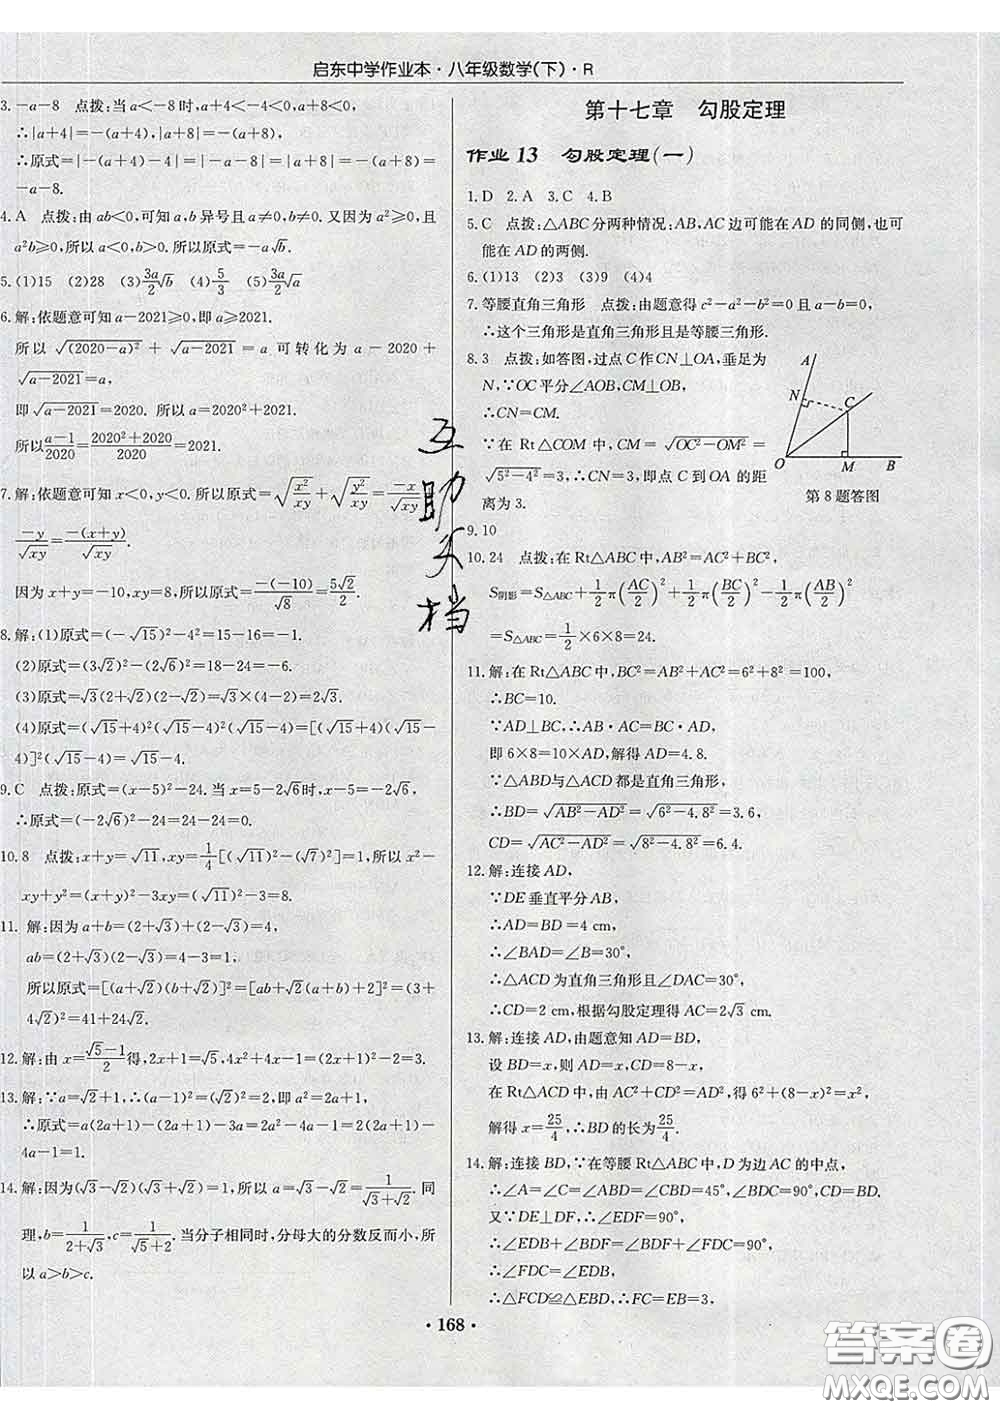 启东中学作业本·八年级数学(下)·R
3. -a-8　点拨:当 a<-8 时,a+4<-4<0,a+8<0,
∴|a+4|=-(a+4),|a+8|=-(a+8).
∴原式=|4-|a+4||=|4+a+4|=|a+8|=-(a+8)=
-a-8.
4. A　点拨:由 ab<0,可知 a,b 异号且 a≠0,b≠0. 又因为 a²≥0,且
a²b≥0,所以 a<0,b>0. 所以原式=-a√b.
5. (1)15　(2)28　(3)3a/2√b　(4)5/3　(5)3a/2√a
6. 解:依题意可知 a-2021≥0,即 a≥2021.
所以 √(2020-a)² + √(a-2021) = a 可转化为 a-2020+
√(a-2021)=a,
即√(a-2021)=2020. 所以 a=2020²+2021.
所以(a-1)/2020=(2020²+2020)/2020=2021.
7. 解:依题意可知 x<0,y<0. 所以原式=√(x²/xy)+√(y²/xy)=-x/√xy+
-y/√xy=-(x+y)/√xy.
因为 x+y=-10,xy=8,所以原式=-(-10)/√8=5√2/2.
8. 解:(1)原式=(-√15)²-4²=15-16=-1.
(2)原式=(3√2)²-(2√6)²=18-24=-6.
(3)原式=√3(2+√2)(2-√2)=√3×(4-2)=2√3.
(4)原式=(√15+4)²(√15-4)²(√15-4)=[(√15+4)(√15-
4)]²(√15-4)=√15-4.
9. C　点拨:原式=(x-5)²-24. 当 x=5-2√6时,x-5=-2√6,
∴原式=(-2√6)²-24=24-24=0.
10. 8　点拨:x+y=√11,xy=1/4[(√11)²-(√7)²]=1,所以 x²-
xy+y²=(x+y)²-3xy=(√11)²-3=8.
11. 解:因为 a+b=(2+√3)+(2-√3)=4,
ab=(2+√3)(2-√3)=4-3=1,
所以原式=[(a+√2)(b+√2)]²=[ab+√2(a+b)+2]²=(3+
4√2)²=41+24√2.
12. 解:由 x=(√5-1)/2得,2x+1=√5,4x²+4x-1=(2x+1)²-2=3.
13. 解:∵a=√2+1,∴(a-1)²=(√2)²=2,即 a²=2a+1,
∴原式=a(2a+1)-(2a+1)-3a=2a²-4a-1=2(2a+1)-
4a-1=1.
14. 解:因为(√3-√2)(√3+√2)=1,所以 a=√3-√2=1/(√3+√2). 同
理,b=1/(2+√3),c=1/(√5+2). 当分子相同时,分母大的分数反而小,所
以 a>b>c.
第十七章　勾股定理
作业 13　勾股定理(一)
1. D　2. A　3. C　4. B
5. C　点拨:△ABC 分两种情况:AB,AC 边可能在 AD 的同侧,也可
能在 AD 的两侧.
6. (1)13　(2)3　(3)9　(4)4
7. 等腰直角三角形　点拨:由题意得 c²-a²-b²=0 且 a-b=0,
∴这个三角形是直角三角形且是等腰三角形.
8. 3　点拨:如答图,过点 C 作 CN⊥OA,垂足为
N,∵OC 平分∠AOB,CM⊥OB,
∴CN=CM.
∵在 Rt△COM 中,CM=√(OC²-OM²)=
√(5²-4²)=3,∴CN=3,即点 C 到 OA 的距
离为 3.
A
N
C
O
M
B
第 8 题答图
9. 10
10. 24　点拨:在 Rt△ABC 中,AB²=AC²+BC²,
S阴影=S△ABC+1/2π(AC/2)²+1/2π(BC/2)²-1/2π(AB/2)²
=S△ABC=1/2×6×8=24.
11. 解:在 Rt△ABC 中,BC²=AB²+AC²=6²+8²=100,
∴BC=10.
∵AD⊥BC,∴AB·AC=BC·AD,
即 6×8=10×AD,解得 AD=4.8.
∵△ABD与△ACD 都是直角三角形,
∴BD=√(AB²-AD²)=√(6²-4.8²)=3.6,
CD=√(AC²-AD²)=√(8²-4.8²)=6.4.
12. 解:连接 AD,
∵DE 垂直平分 AB,
∴AD=BD=4 cm,
∴∠BAD=∠B=30°,
∴△ACD 为直角三角形且∠DAC=30°,
∴CD=2 cm,根据勾股定理得 AC=2√3 cm.
13. 解:连接 AD,由题意知 AD=BD,
设 BD=x,则 AD=x,CD=8-x,
在 Rt△ACD 中,由 AC²+CD²=AD²,得 6²+(8-x)²=x²,
解得 x=25/4,∴BD 的长为25/4.
14. 解:连接 BD,∵在等腰 Rt△ABC 中,D 为边 AC 的中点,
∴∠A=∠C=∠ABD=∠CBD=45°,∠BDC=90°,BD=CD.
又∵DE⊥DF,∴∠EDF=90°,
∴∠EDB+∠BDF=∠BDF+∠FDC=90°,
∴∠FDC=∠EDB,
∴△FCD≌△EBD,∴FC=EB=3,
互
助
文
档
· 168 ·
答案圈
MXQE.COM